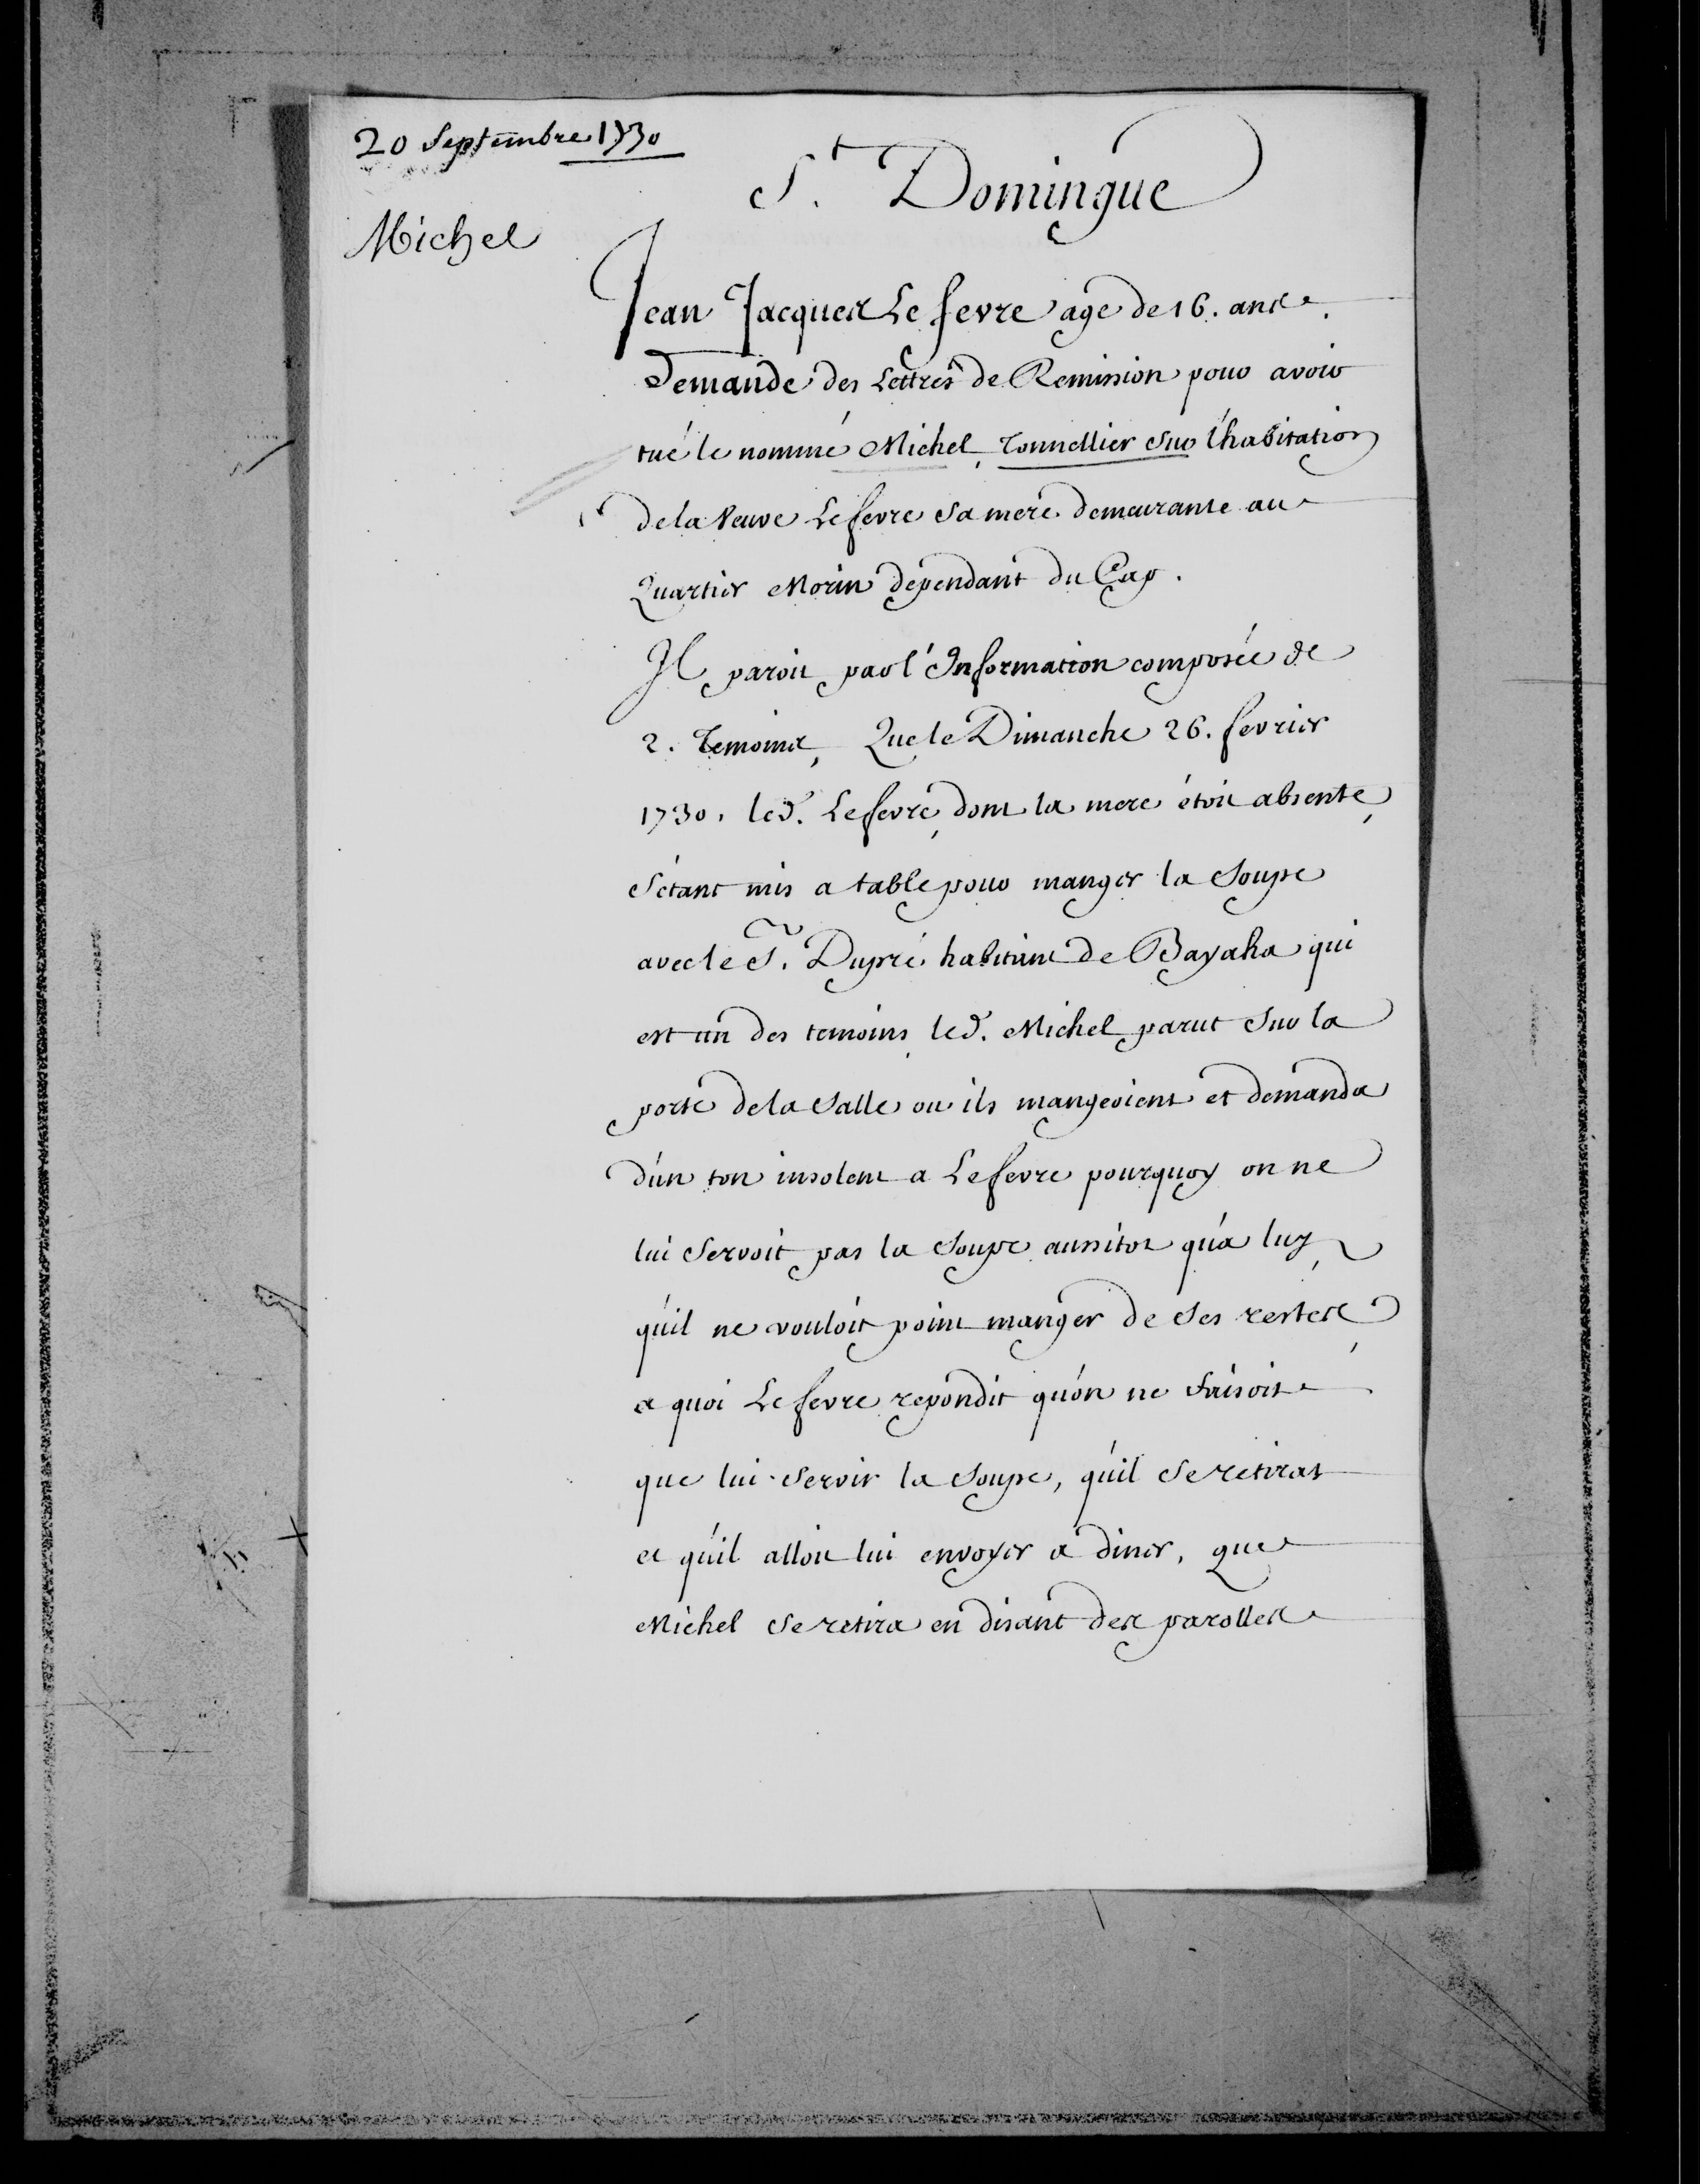 20 Septembre 1730
St. Domingue
Michel
Jean Jacques Lefevre agé de 16. ans.
Demande des Lettres de Remission pour avoir
tué le nommé Michel, Tonnellier sur l'habitation
de la Veuve Lefevre sa mere demeurante au
Quartier Morin dépendant du Cap.
Il paroit par l'Information composée de
2. Temoins, Que le Dimanche 26. fevrier
1730. led. Lefevre, dont la mere étoit absente,
s'étant mis a table pour manger la Soupe
avec le Sr. Dupré habitant de Bayaha qui
est un des temoins, led. Michel parut sur la
porte de la Salle ou ils mangeoient et demanda
d'un ton insolent a Lefevre pourquoy on ne
lui servoit pas la Soupe aussitot qu'a luy,
qu'il ne vouloit point manger de ses restes,
a quoi Lefevre repondit qu'on ne faisoit
que lui servir la Soupe, qu'il se retirat
et qu'il alloit lui envoyer a diner, que
Michel se retira en disant des parolles